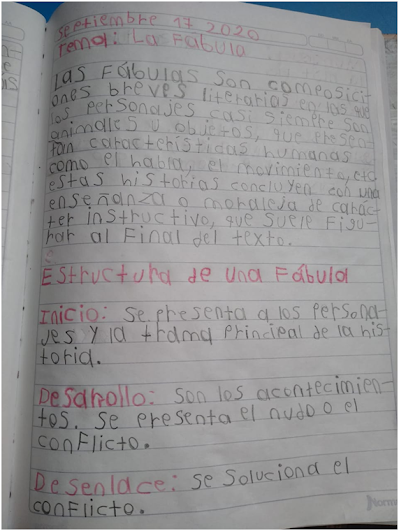 Septiembre 17 2020
Tema: La Fábula
Las Fábulas son composici-
ones breves literarias en las que
los personajes casi siempre son
animales u objetos, que presen-
tan características humanas
como el habla, el movimiento, etc
estas historias concluyen con una
enseñanza o moraleja de carác-
ter instructivo, que suele Figu-
rar al Final del texto.
Estructura de una Fábula
Inicio: Se presenta a los persona-
jes y la trama principal de la his-
toria.
Desarrollo: Son los acontecimien-
tos. Se presenta el nudo o el
conFlicto.
Desenlace: Se soluciona el
conFlicto.